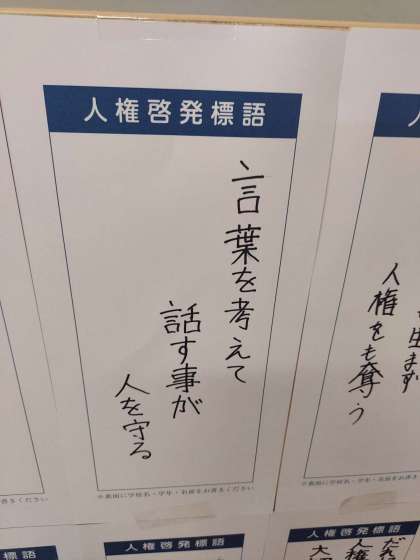 人権啓発標語
言葉を考えて
話す事が
人を守る
※裏面に学校名・学年・名前をお書きください
生まず
人権をも奪う
※裏面に学校名・学年・名前をお書き
書きください
人権啓発標語
人権啓発標語